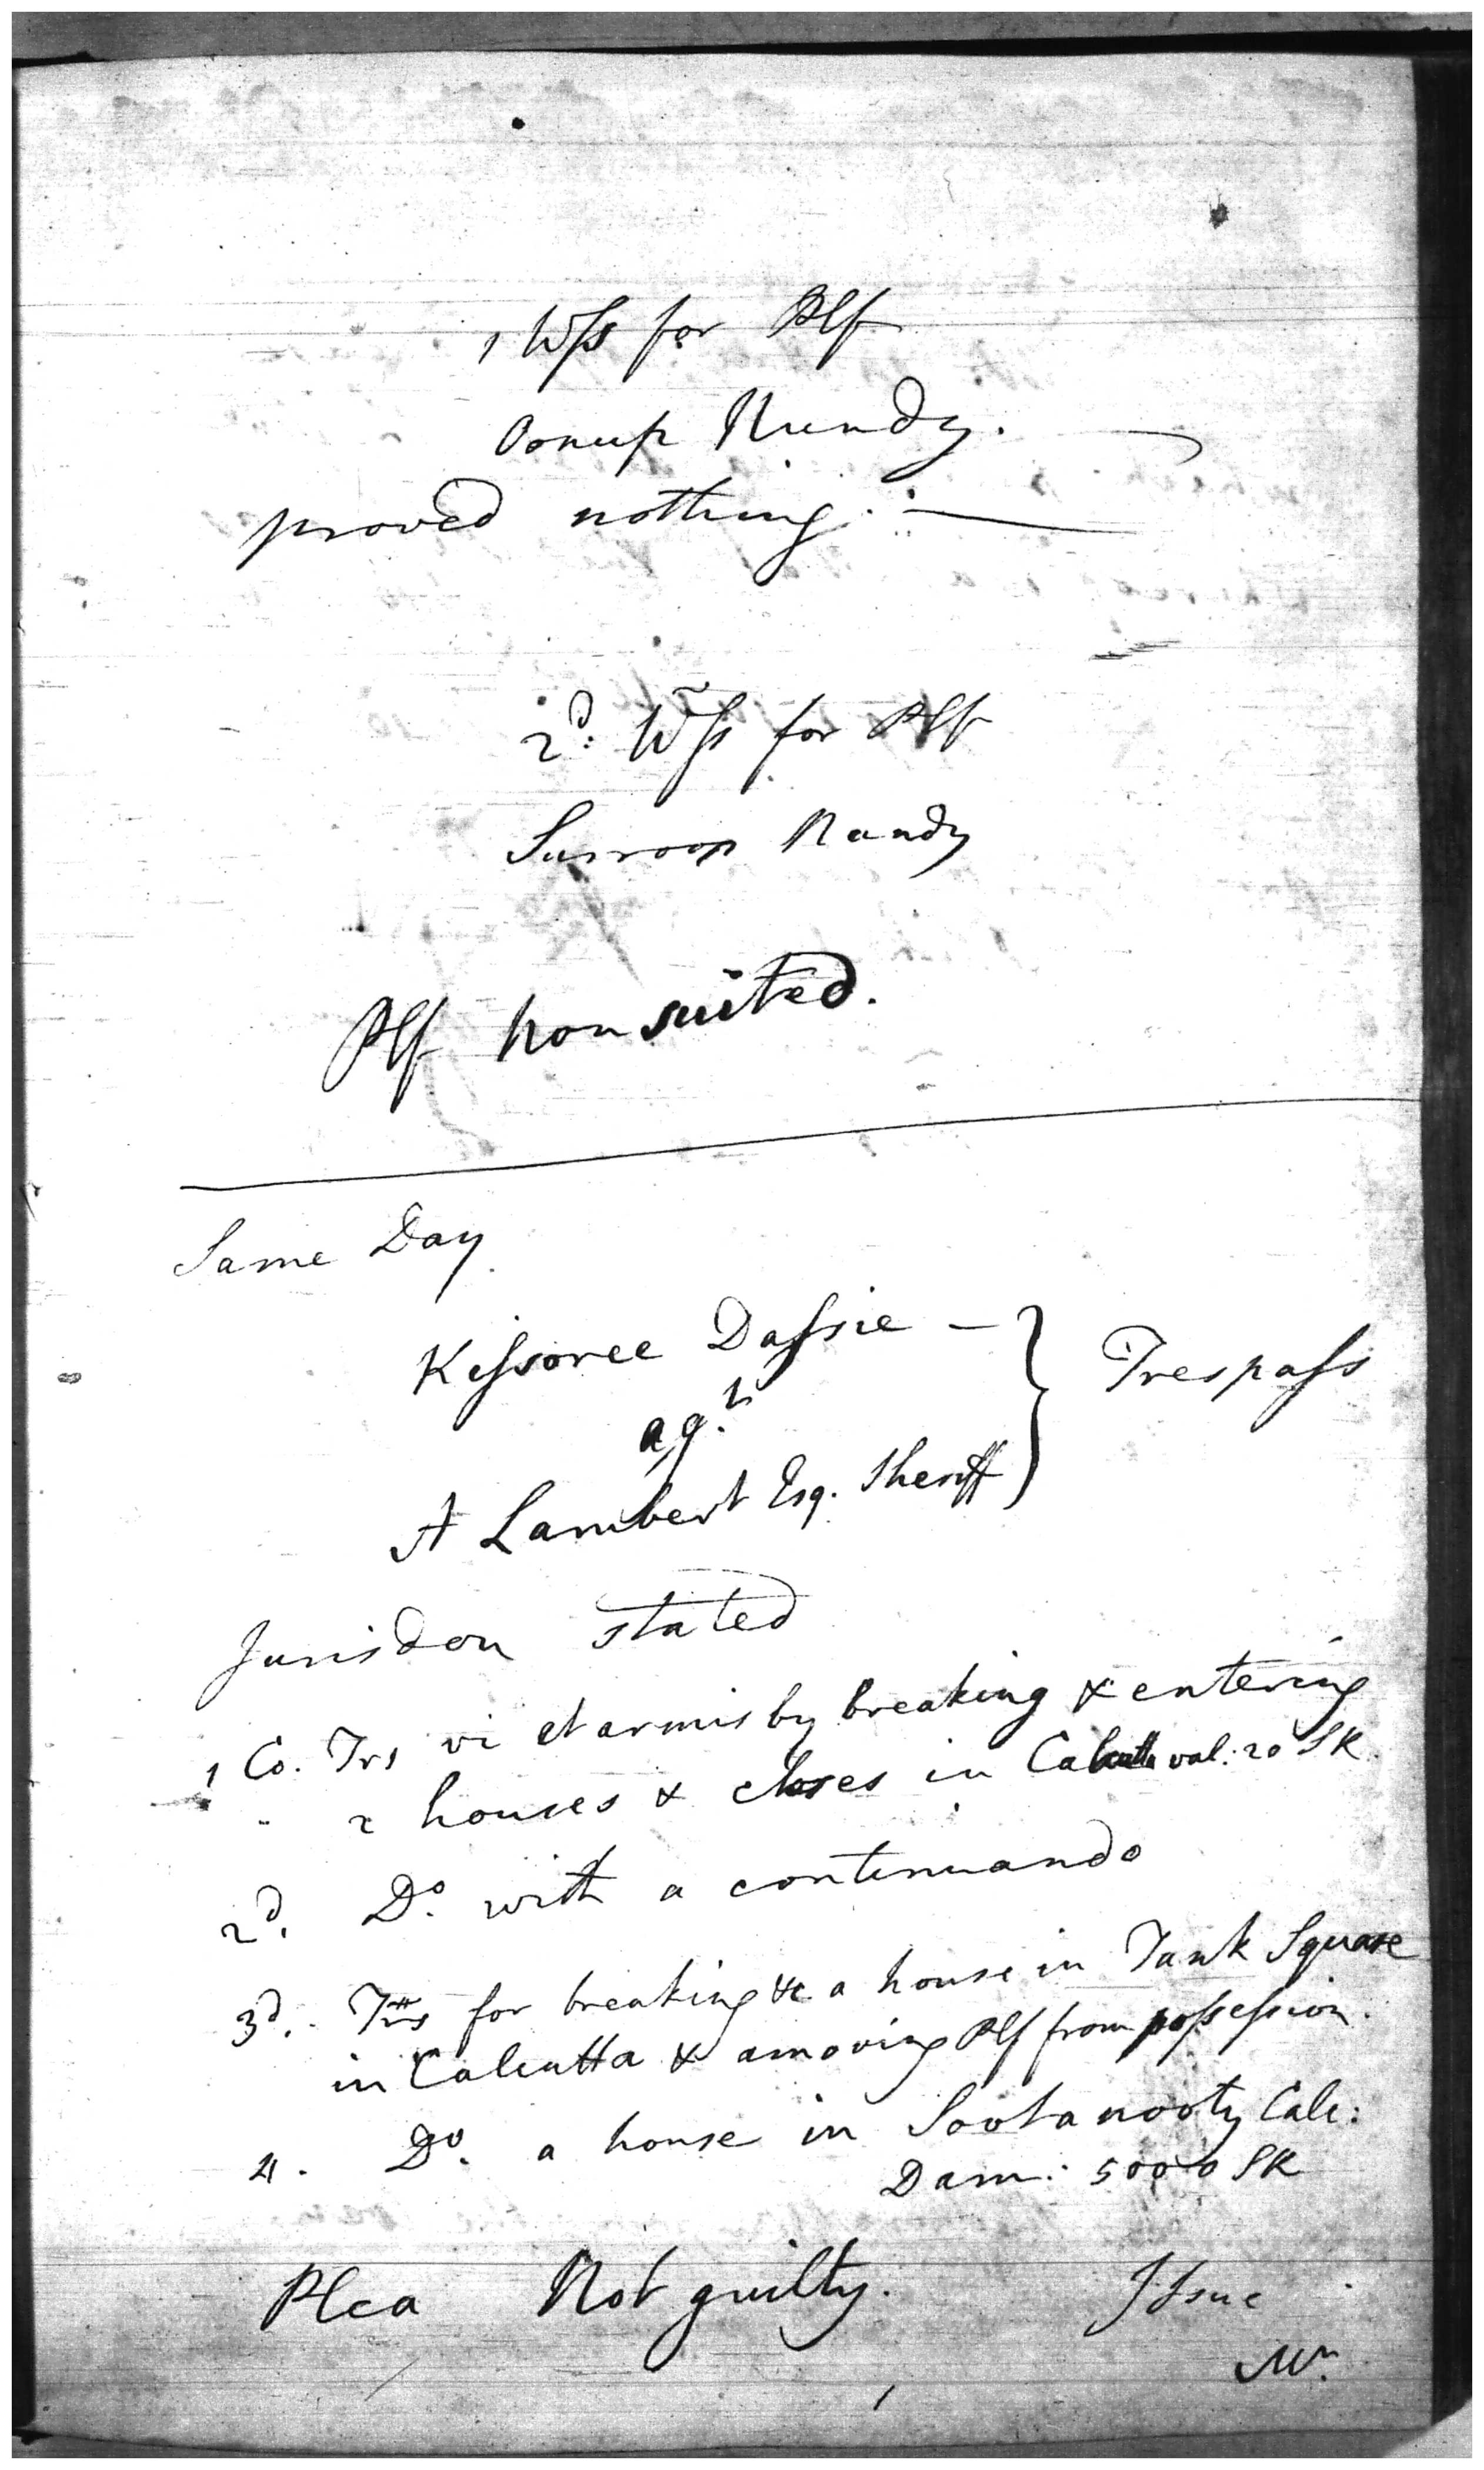 1 Wss for Plf
Oonup Nundy.
proved nothing.
2d: Wss for Plf
Surroop Nandy
Plf nonsuited.
Same Day
Kissoree Dassie
agt
A Lambert Esq. Sheriff } Trespass
Jurisdon stated
1 Co. Trs vi et armis by breaking & entering
2 houses & closes in Calcutta val: 20 SR.
2d. Do. with a continuando
3d. Trs for breaking &c a house in Tank Square
in Calcutta & amoving Plf from possession.
4. Do. a house in Sootanooty Calc:
Dam: 5000 SR
Plea Not guilty. Issue
Mr.